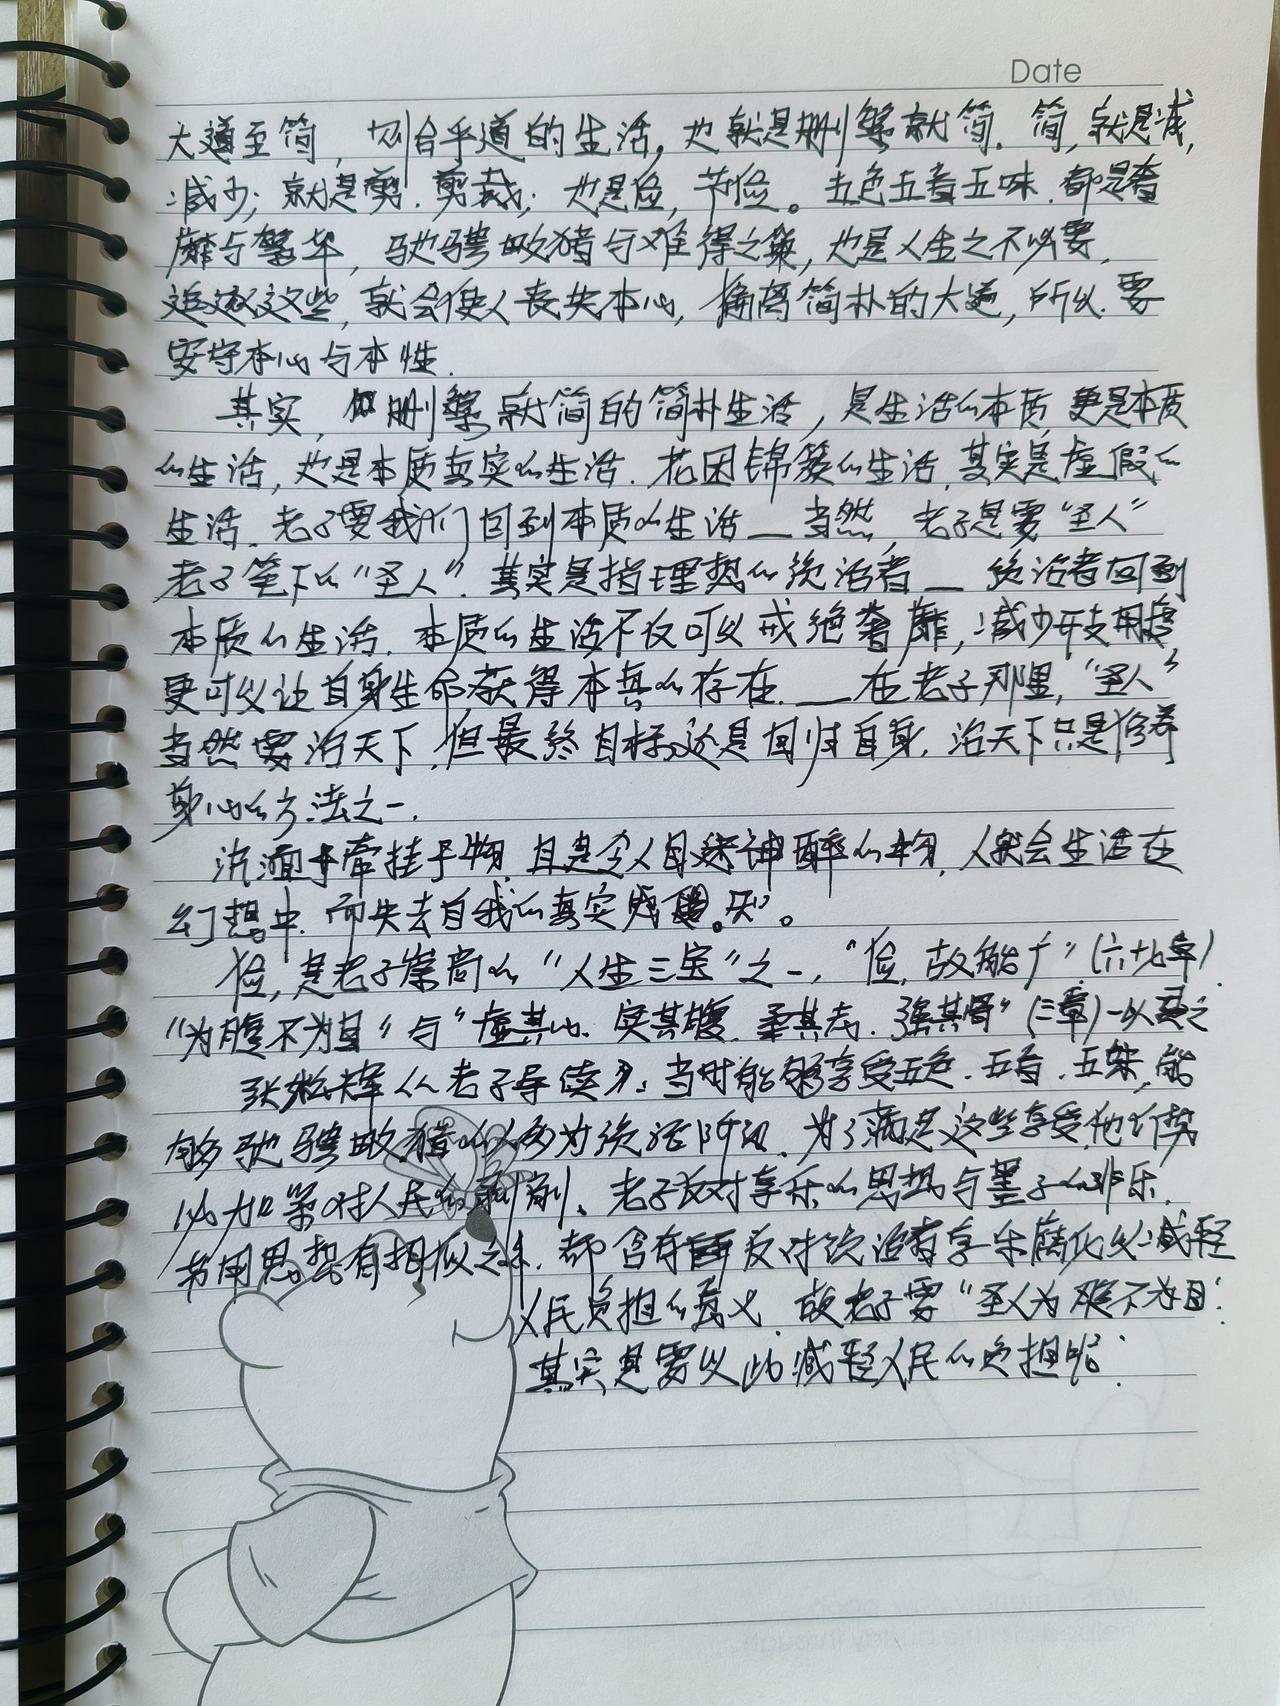 Date
大道至简，切合乎道的生活，也就是删繁就简。简，就是减，
减少；就是剪．剪裁；也是俭，节俭。五色五音五味．都是奢
靡与繁华，驰骋畋猎与难得之货，也是人生之不必要．
追逐这些，就会使人丧失本心，偏离简朴的大道，所以．要
安守本心与本性．
其实，如删繁就简的简朴生活，是生活的本质，更是本质
的生活，也是本质真实的生活．花团锦簇的生活，其实是虚假的
生活．老子要我们回到本质的生活——当然，老子是要“圣人”
老子笔下的“圣人”．其实是指理想的统治者——统治者回到
本质的生活．本质的生活不仅可以戒绝奢靡，减少开支用度
更可以让自身生命获得本真的存在．——在老子那里，“圣人”
当然要治天下，但最终目标还是回归自身．治天下只是修养
身心的方法之一．
沉湎于牵挂于物，且是令人目迷神醉的物，人就会生活在
幻想中．而失去自我的真实感知。
俭，是老子崇尚的“人生三宝”之一，“俭，故能广”（六七章）
“为腹不为目”与“虚其心．实其腹．柔其志．强其骨”（三章）一以贯之
张松辉《老子导读》：当时能够享受五色．五音．五味，能
够驰骋畋猎的人多为统治阶级．为了满足这些享受，他们势
必加紧对人民的剥削．老子反对享乐的思想与墨子的非乐．
节用思想有相似之处．都含有反对统治者享乐腐化以减轻
人民负担的意义．故老子要“圣人为腹不为目”．
其实是要以此减轻人民的负担呢．